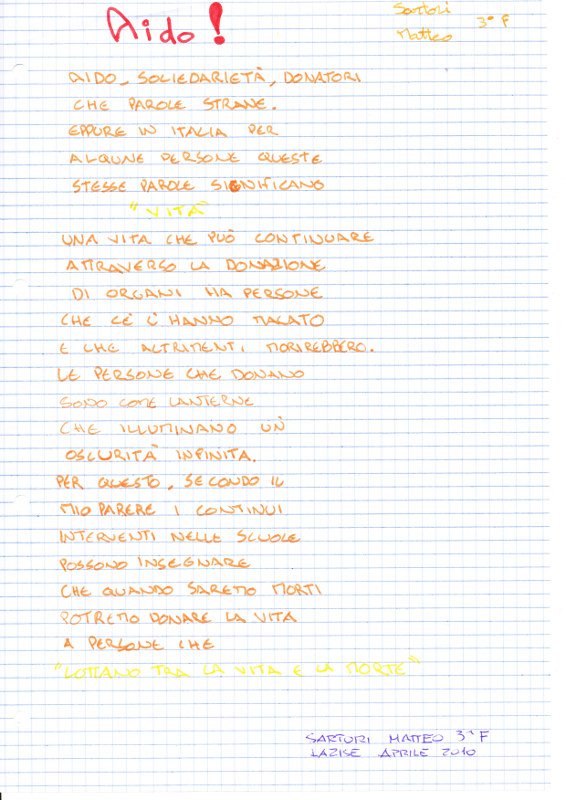 Aido!
Sartori 3° F
Matteo
AIDO, SOLIEDARIETÀ, DONATORI
CHE PAROLE STRANE.
EPPURE IN ITALIA PER
ALQUNE PERSONE QUESTE
STESSE PAROLE SIGNIFICANO
"VITÀ"
UNA VITA CHE PUÒ CONTINUARE
ATTRAVERSO LA DONAZIONE
DI ORGANI HA PERSONE
CHE CÈ L'HANNO MALATO
E CHE ALTRIMENTI, MORIREBBERO.
LE PERSONE CHE DONANO
SONO COME LANTERNE
CHE ILLUMINANO UN'
OSCURITÀ INFINITA.
PER QUESTO, SECONDO IL
MIO PARERE I CONTINUI
INTERVENTI NELLE SCUOLE
POSSONO INSEGNARE
CHE QUANDO SAREMO MORTI
POTREMO DONARE LA VITA
A PERSONE CHE
"LOTTANO TRA LA VITA E LA MORTE"
SARTORI MATTEO 3° F
LAZISE APRILE 2010